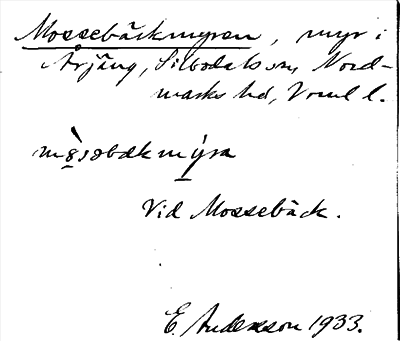 Mossebäckmyren, myr i
Årjäng, Silbodals sn, Nord-
marks hd, Vrml l.
mo̠sɔbækmy̠ra
Vid Mossebäck.
E. Andersson 1933.